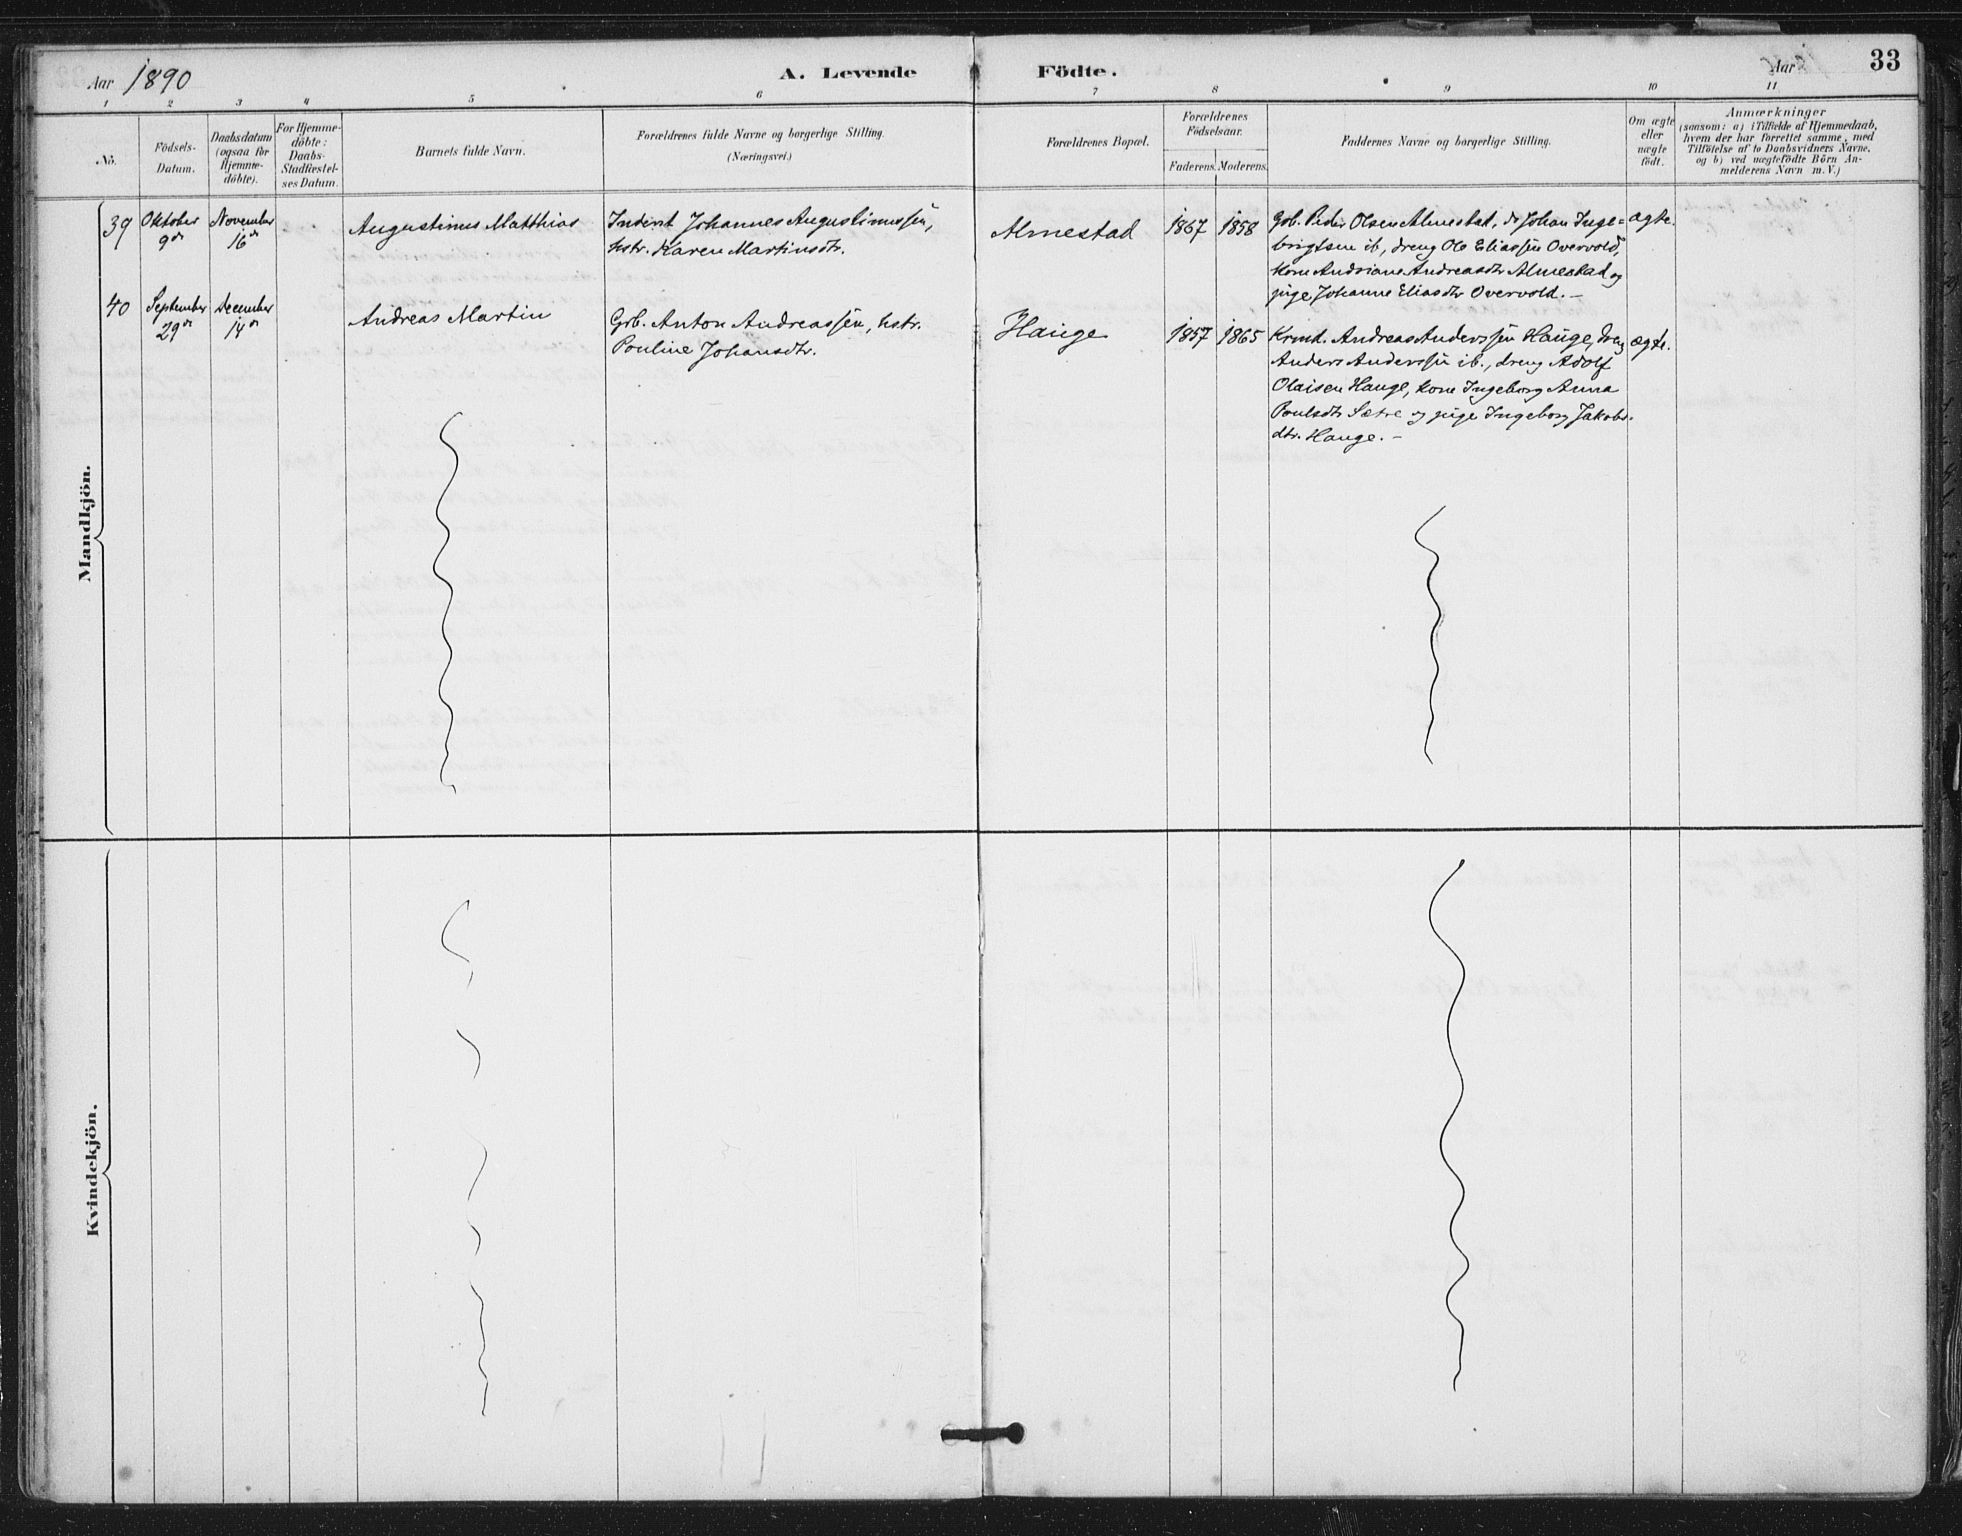 Aar 1890
A. Levende Födte.
Aar
33
1 2 3 4 5 6 7 8 9 10 11
No.
Födsels-
Datum.
Daabsdatum
(ogsaa for
Hjemme-
döbte).
For Hjemme-
döbte:
Daabs-
Stadfæstel-
ses Datum.
Barnets fulde Navn.
Forældrenes fulde Navne og borgerlige Stilling.
(Næringsvei.)
Forældrenes Bopæl.
Forældrenes
Födselsaar.
Faderens. Moderens.
Faddernes Navne og borgerlige Stilling.
Om ægte
eller
uægte
födt.
Anmærkninger
(saasom: a) i Tilfælde af Hjemmedaab,
hvem der har forrettet samme, med
Tilföielse af to Daabsvidners Navne,
og b) ved uægtefödte Börn An-
melderens Navn m. V.)
Mandkjön.
39
Oktober
9de
November
16de
Augustinus Matthias
Inderst Johannes Augustinussen,
hstr. Karen Martinsdtr.
Almestad
1867
1858
Gbr. Peder Olsen Almestad, do Johan Inge-
brigtsen ib., dreng Ole Eliassen Overvold,
kone Andriane Andreasdtr Almestad og
pige Johanne Eliasdtr Overvold. -
ægte.
40
September
29de
December
14de
Andreas Martin
Grb. Anton Andreassen, hstr.
Pouline Johansdtr.
Hauge
1857
1865
Krmd. Andreas Anderssen Hauge, dreng
Anders Anderssen ib., dreng Adolf
Olaisen Hauge, kone Ingeborg Anna
Poulsdtr Sætre og pige Ingeborg Jakobs-
dtr. Hauge. -
ægte.
Kvindekjön.